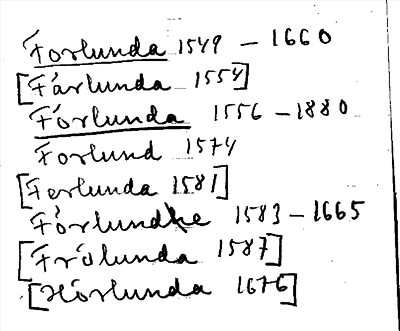 Forlunda 1549 – 1660
[Fårlunda 1554]
Förlunda 1556 – 1880
Forlund 1574
[Ferlunda 1581]
Förlundhe 1583 – 1665
[Frölunda 1587]
[Hörlunda 1676]